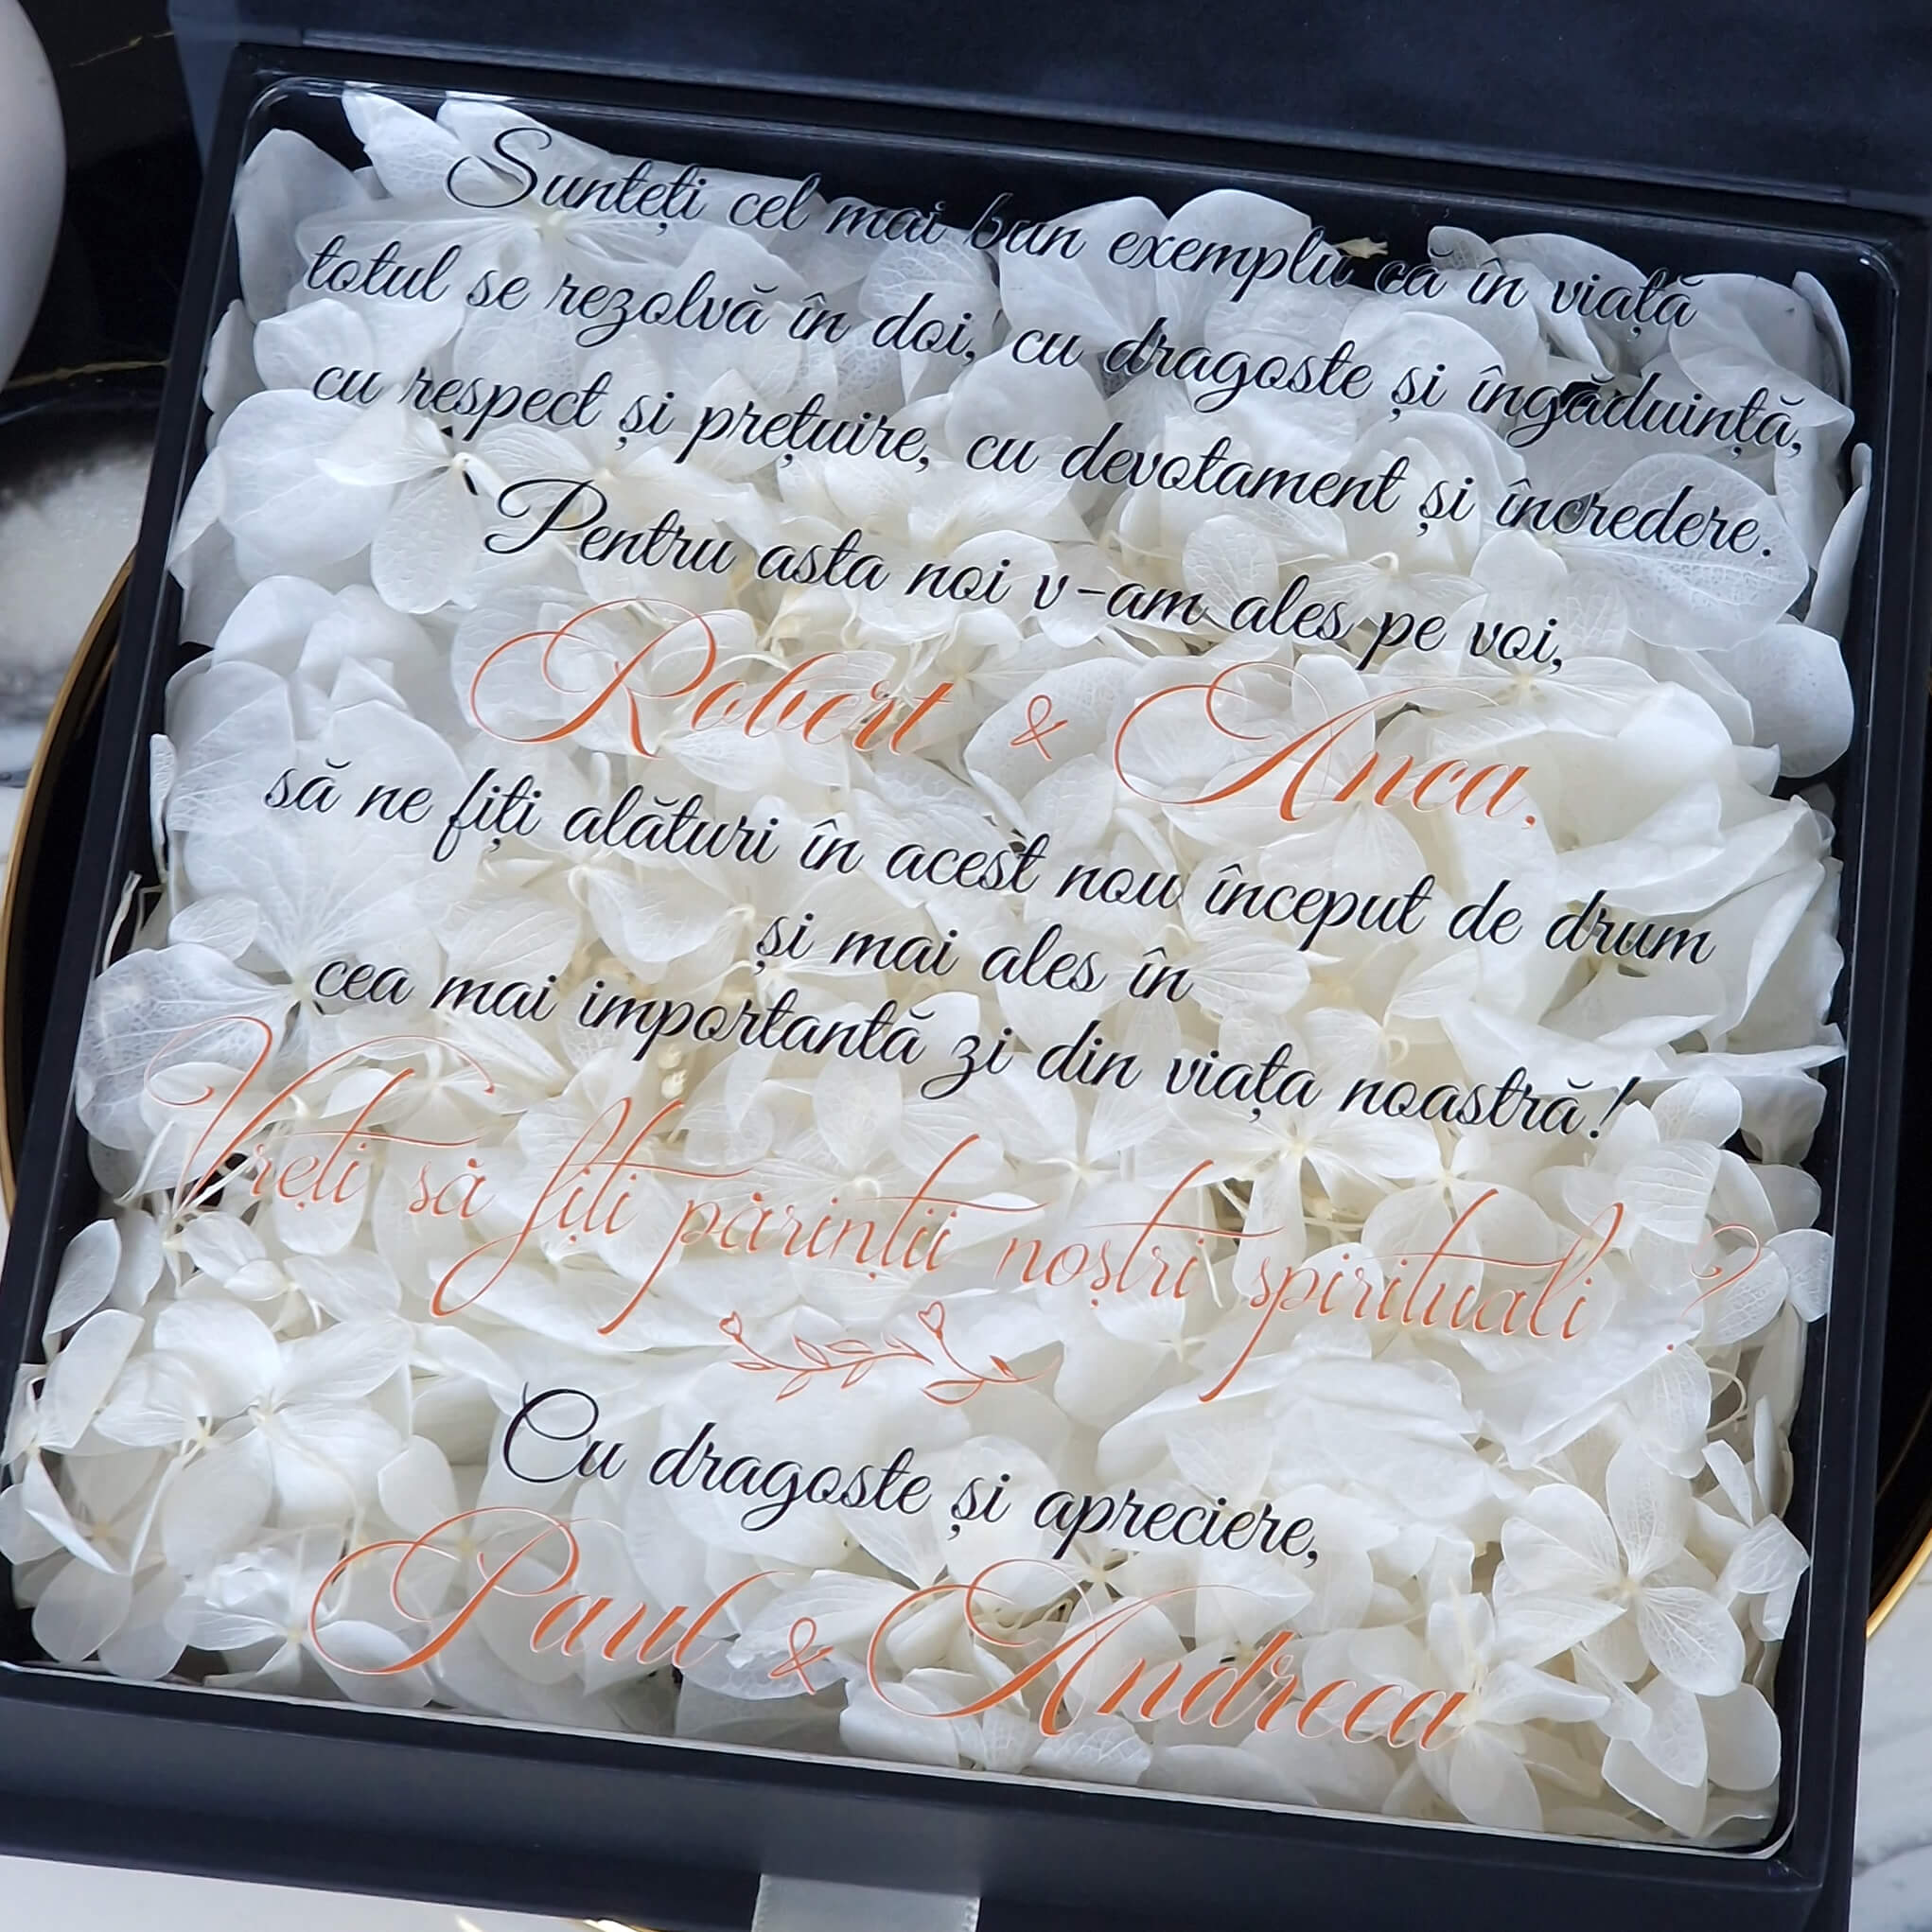 Sunteți cel mai bun exemplu că în viață
totul se rezolvă în doi, cu dragoste și îngăduință,
cu respect și prețuire, cu devotament și încredere.
Pentru asta noi v-am ales pe voi,
Robert & Anca,
să ne fiți alături în acest nou început de drum
și mai ales în
cea mai importantă zi din viața noastră!
Vreți să fiți părinții noștri spirituali ?
Cu dragoste și apreciere,
Paul & Andreea